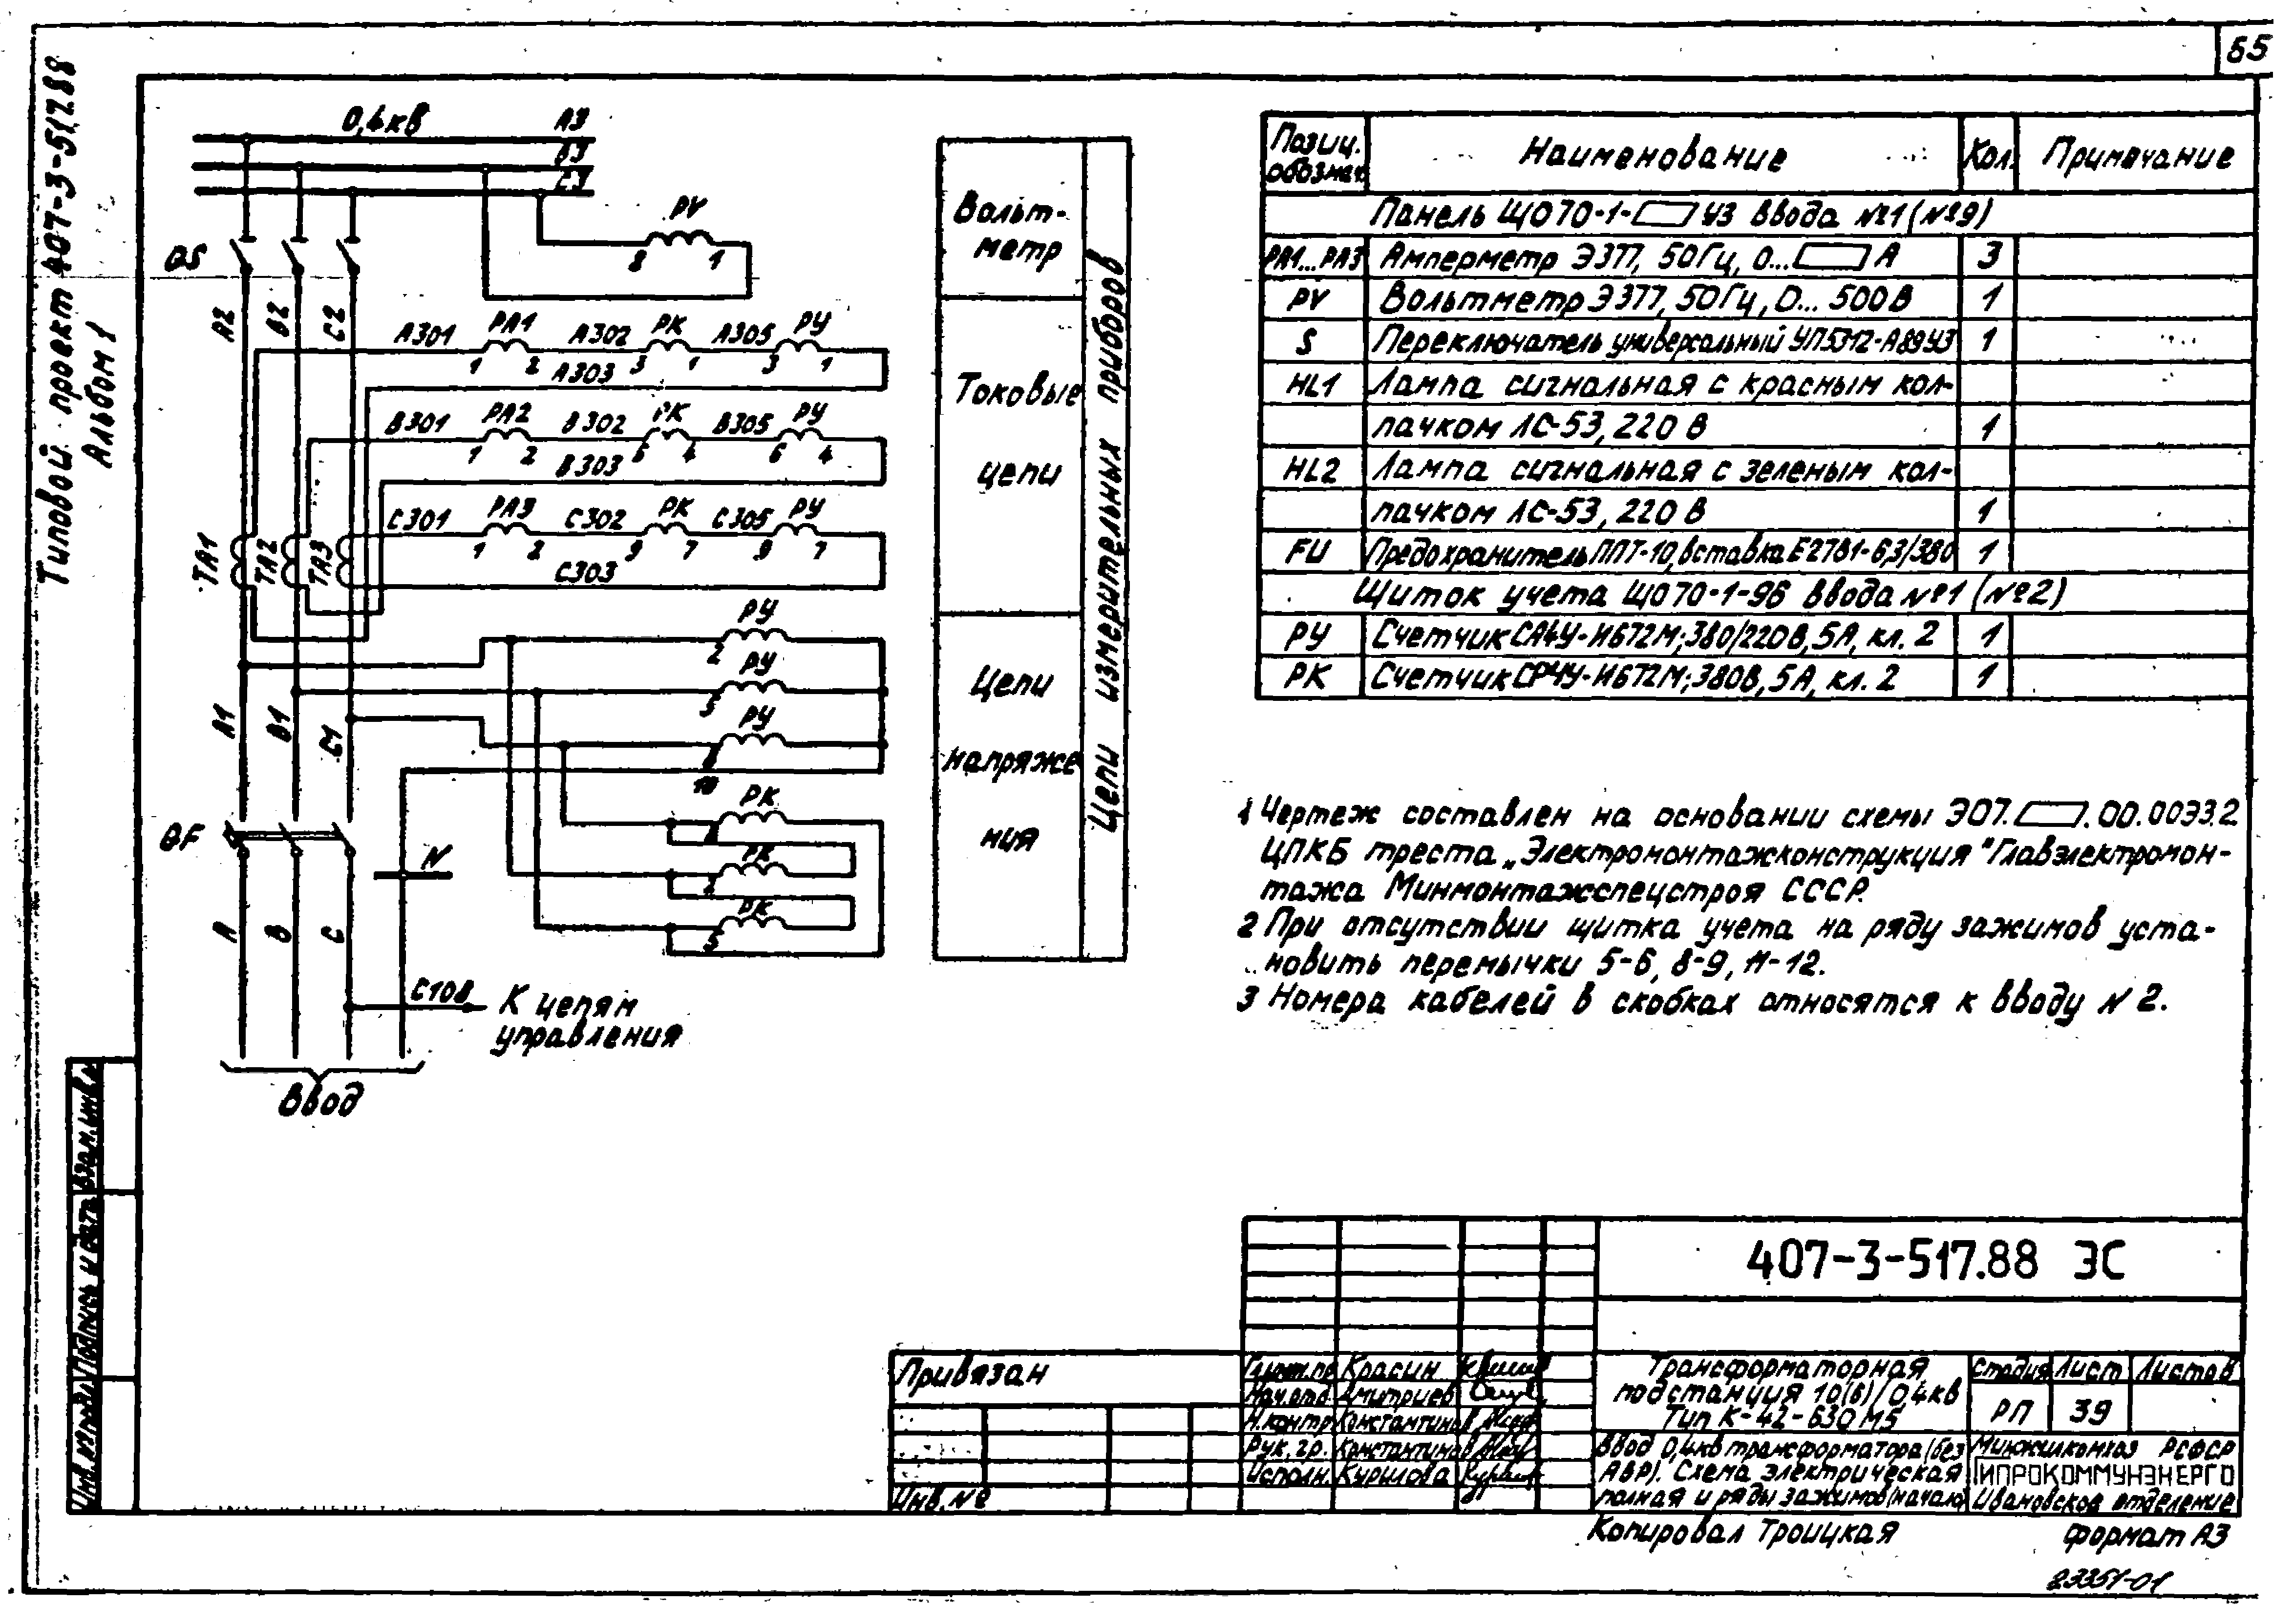 55
Типовой проект 407-3-517.88
Альбом 1
0,4кВ
А3
В3
С3
PV
8 1
QS
А2 В2 С2
А301 РА1 А302 РК А305 РУ
1 2 3 1 3 1
А303
В301 РА2 В302 РК В305 РУ
1 2 6 4 6 4
В303
С301 РА3 С302 РК С305 РУ
1 2 9 7 9 7
С303
ТА1 ТА2 ТА3
РУ
2
РУ
5
РУ
8
10
А1 В1 С1
РК
РК
2
РК
5
QF
N
А В С
С108
К цепям
управления
Ввод
Вольт-
метр
Токовые
цепи
Цепи
напряже
ния
Цепи измерительных приборов
Позиц. обознач. Наименование Кол. Примечание
Панель ЩО70-1- У3 ввода №1 (№9)
РА1...РА3 Амперметр Э377, 50Гц, 0... А 3
PV Вольтметр Э377, 50Гц, 0... 500В 1
S Переключатель универсальный УП5312-А89У3 1
HL1 Лампа сигнальная с красным кол-
пачком ЛС-53, 220 В 1
HL2 Лампа сигнальная с зеленым кол-
пачком ЛС-53, 220 В 1
FU Предохранитель ППТ-10, вставка Е2781-6,3/380 1
Щиток учета ЩО70-1-96 ввода №1 (№2)
РУ Счетчик СА4У-И672М; 380/220В, 5А, кл. 2 1
РК Счетчик СР4У-И672М; 380В, 5А, кл. 2 1
1 Чертеж составлен на основании схемы Э07. .00.00Э3.2
ЦПКБ треста „Электромонтажконструкция" Главэлектромон-
тажа Минмонтажспецстроя СССР.
2 При отсутствии щитка учета на ряду зажимов уста-
новить перемычки 5-6, 8-9, 11-12.
3 Номера кабелей в скобках относятся к вводу N 2.
407-3-517.88 ЭС
Привязан
Инв. №
Гл.инж.пр Красин
Нач.отд Дмитриев
Н.контр Константинов
Рук. гр. Константинов
Исполн. Курилова
Трансформаторная
подстанция 10(6)/0,4кВ
Тип К-42-630 М5
Стадия Лист Листов
РП 39
Ввод 0,4кв трансформатора (без
АВР). Схема электрическая
полная и ряды зажимов (начало)
Минжилкомхоз РСФСР
ГИПРОКОММУНЭНЕРГО
Ивановское отделение
Копировал Троицкая
Формат А3
23351-01
Инв. № подл. Подпись и дата Взам. инв. №